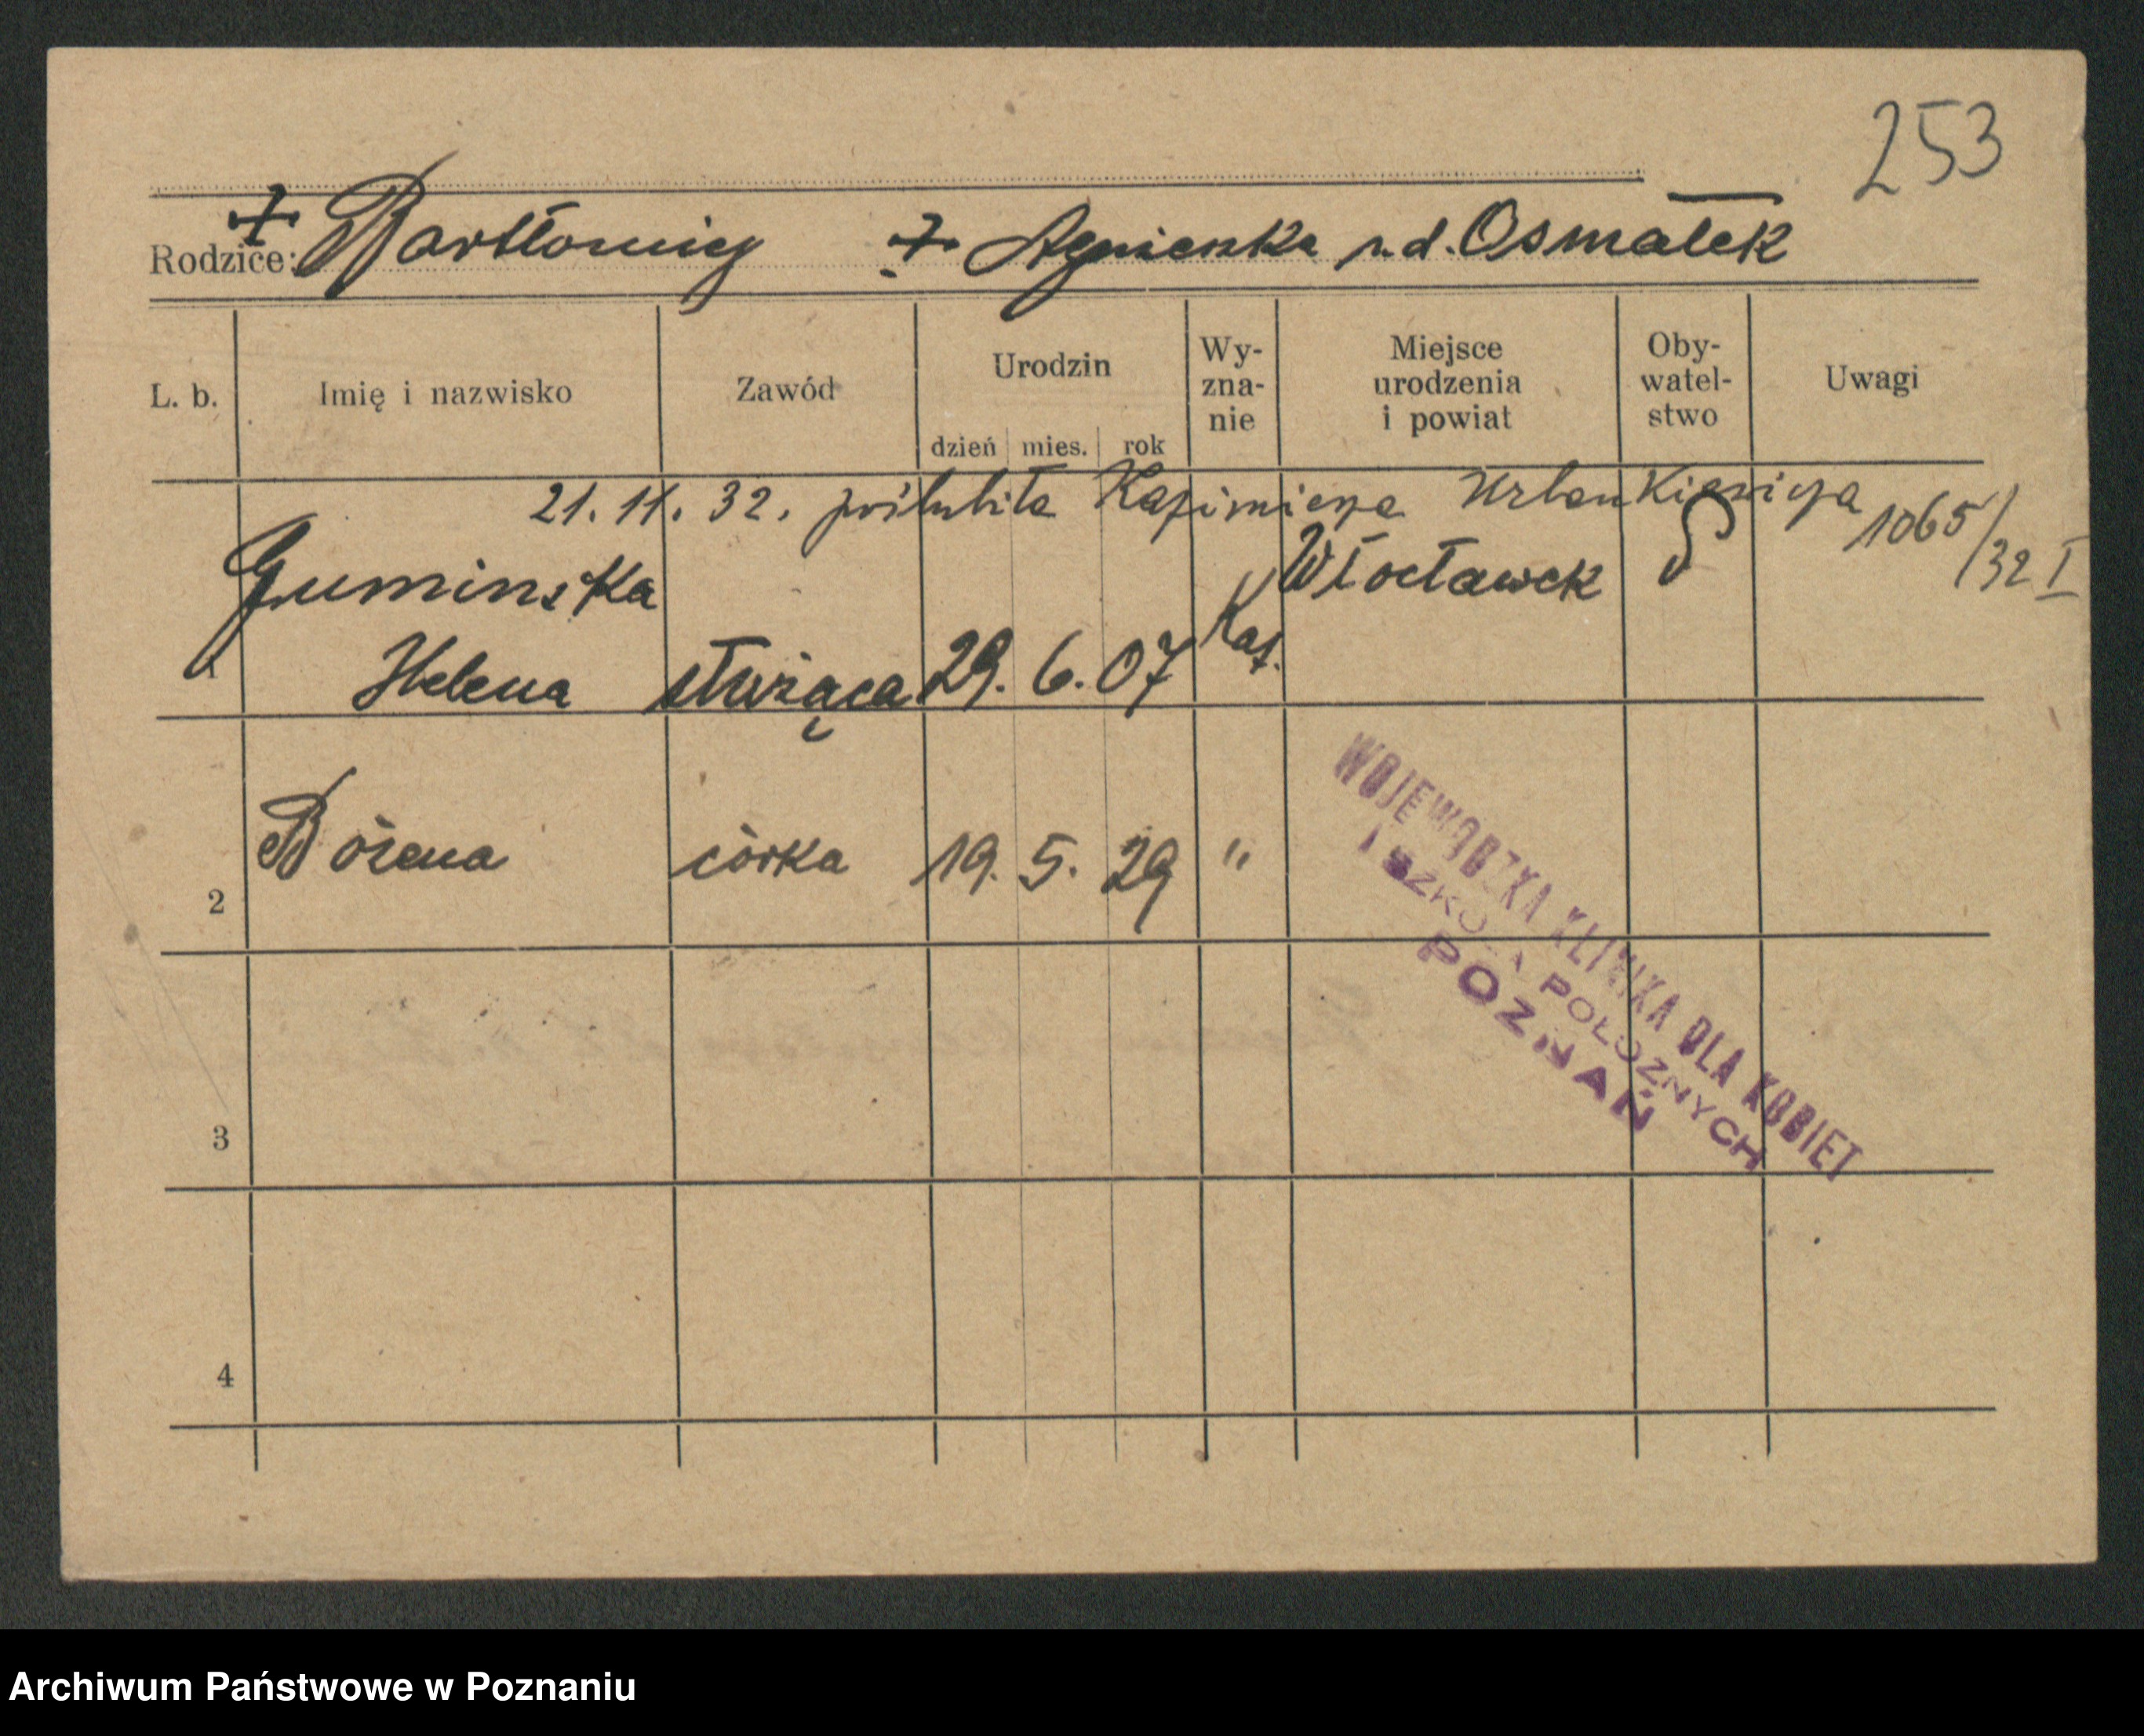 253
Rodzice: + Bartłomiej + Agnieszka r. d. Osmałek
L. b. Imię i nazwisko Zawód Urodzin dzień mies. rok Wy-zna-nie Miejsce urodzenia i powiat Oby-watel-stwo Uwagi
21. 11. 32. poślubiła Kazimierza Urbankiewicza 1065/32 I
1 Guminska Włocławek
Helena służąca 29. 6. 07 Kat.
2 Bożena córka 19. 5. 29 "
WOJEWÓDZKA KLINIKA DLA KOBIET
I SZKOŁA POŁOŻNYCH
POZNAŃ
3
4
Archiwum Państwowe w Poznaniu